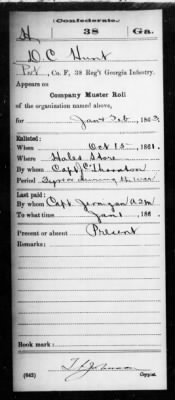 Confederate.
H 38 Ga.
D. C. Hunt
Pvt, Co. F, 38 Reg't Georgia Infantry.
Appears on
Company Muster Roll
of the organization named above,
for Jan & Feb, 1863.
Enlisted:
When Oct 15, 1861.
Where Hales Store
By whom Capt J C Thornton
Period 3 yrs or during the war
Last paid:
By whom Capt Jernigan A2M
To what time Jan 1, 186 .
Present or absent Present
Remarks:
Book mark:
(642) Copyist.